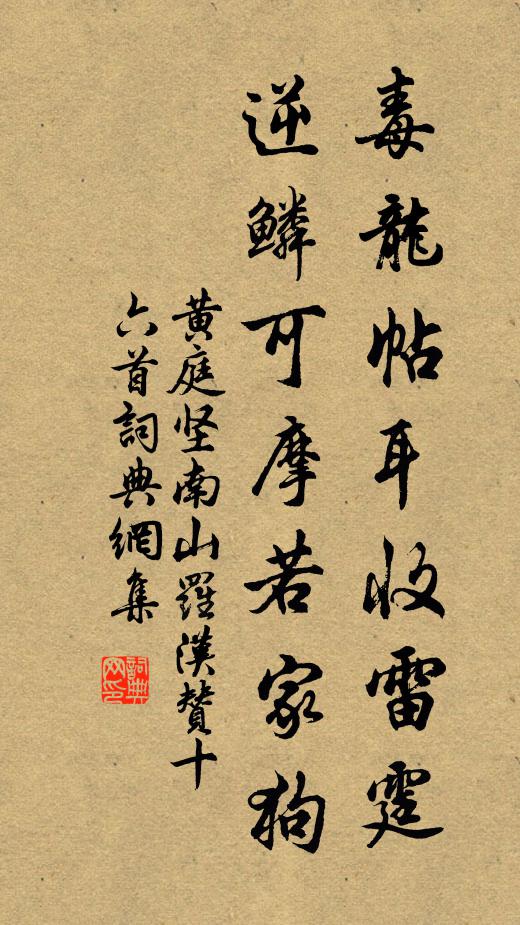 毒龍帖耳收雷霆
逆鱗可摩若家狗
黄庭坚南山羅漢贊十
六首詞典網集
詞典網印